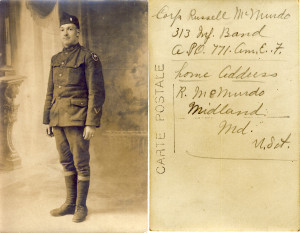 Corp Russell McMurdo
313 Inf. Band
A.P.O. 771. Am. E. F.
home address
R. McMurdo
Midland
Md.
CARTE POSTALE